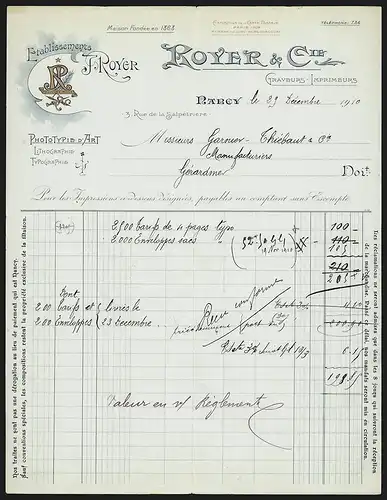 Maison Fondée en 1868
TÉLÉPHONE: 7.36
Etablissements
J. Royer
JR
ROYER & CIE
GRAVEURS-IMPRIMEURS
NANCY le 29 Décembre 1910
3, Rue de la Salpêtrière
PHOTOTYPIE D'ART
LITHOGRAPHIE
TYPOGRAPHIE
Messieurs Garnier-Thiébaut & Cie
Manufacturiers
Gérardmer
Doit
Pour les Impressions ci-dessous désignées, payables au comptant sans Escompte
2,500 tarifs de 4 pages type 100
2,000 Enveloppes sacs 110
105
210
205
Dont
200 tarifs et livrés le
200 Enveloppes 23 décembre
Reçu conforme
Valeur en v/ Règlement
Nos traites ne sont pas une dérogation au lieu de paiement qui est Nancy.
Sauf conventions spéciales, les compositions restent la propriété exclusive de la Maison.
Les réclamations ne seront admises que dans les 8 jours qui suivront la réception
de la marchandise. Passé ce délai, nos mandats seront mis en circulation.